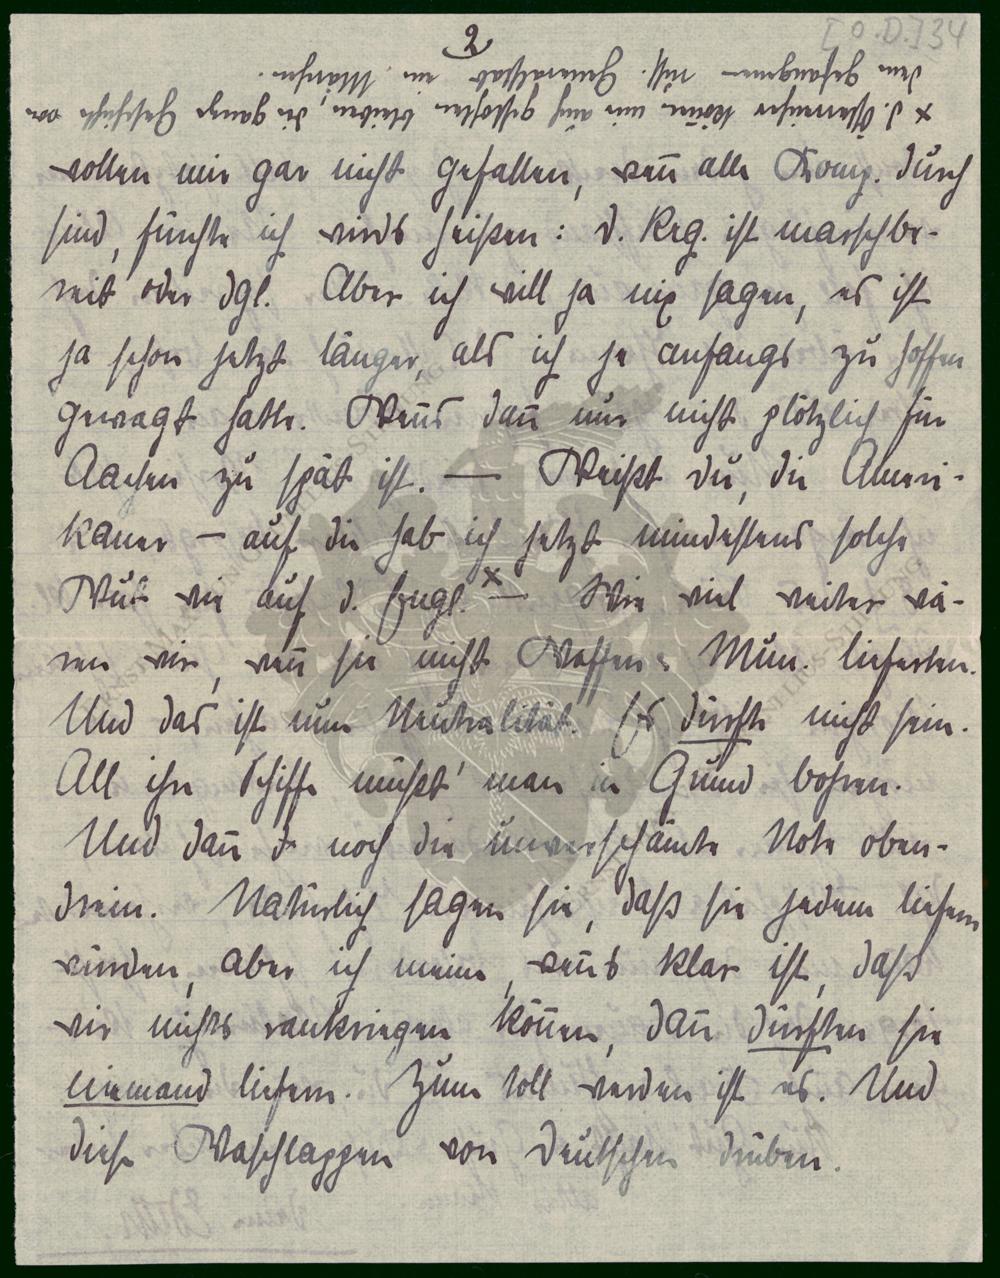 [O.D.] 34
2
x d. Österreicher können mir auch gestohlen bleiben, die ganze Geschichte von
dem gefangenen russ. Generalstab ein Märchen.
wollen mir gar nicht gefallen, weñ alle Komp. durch
sind, fürchte ich wirds heißen: d. Reg. ist marschbe-
reit oder dgl. Aber ich will ja nix sagen, es ist
ja schon jetzt länger, als ich je anfangs zu hoffen
gewagt hatte. Weñs dañ nur nicht plötzlich für
Aachen zu spät ist. — Weißt du, die Ameri-
kaner — auf die hab ich jetzt mindestens solche
Wut wie auf d. Engl. x — Wie viel weiter wä-
ren wir, weñ sie nicht Waffen u. Mun. lieferten.
Und das ist nun Neutralität. Es dürfte nicht sein.
All ihre Schiffe müßt' man in Grund bohren.
Und dañ noch die unverschämte Note oben-
drein. Natürlich sagen sie, daß sie jedem liefern
würden, aber ich meine, weñs klar ist, daß
wir nichts rankriegen köñen, dañ dürften sie
niemand liefern. Zum toll werden ist es. Und
diese Waschlappen von Deutschen drüben.